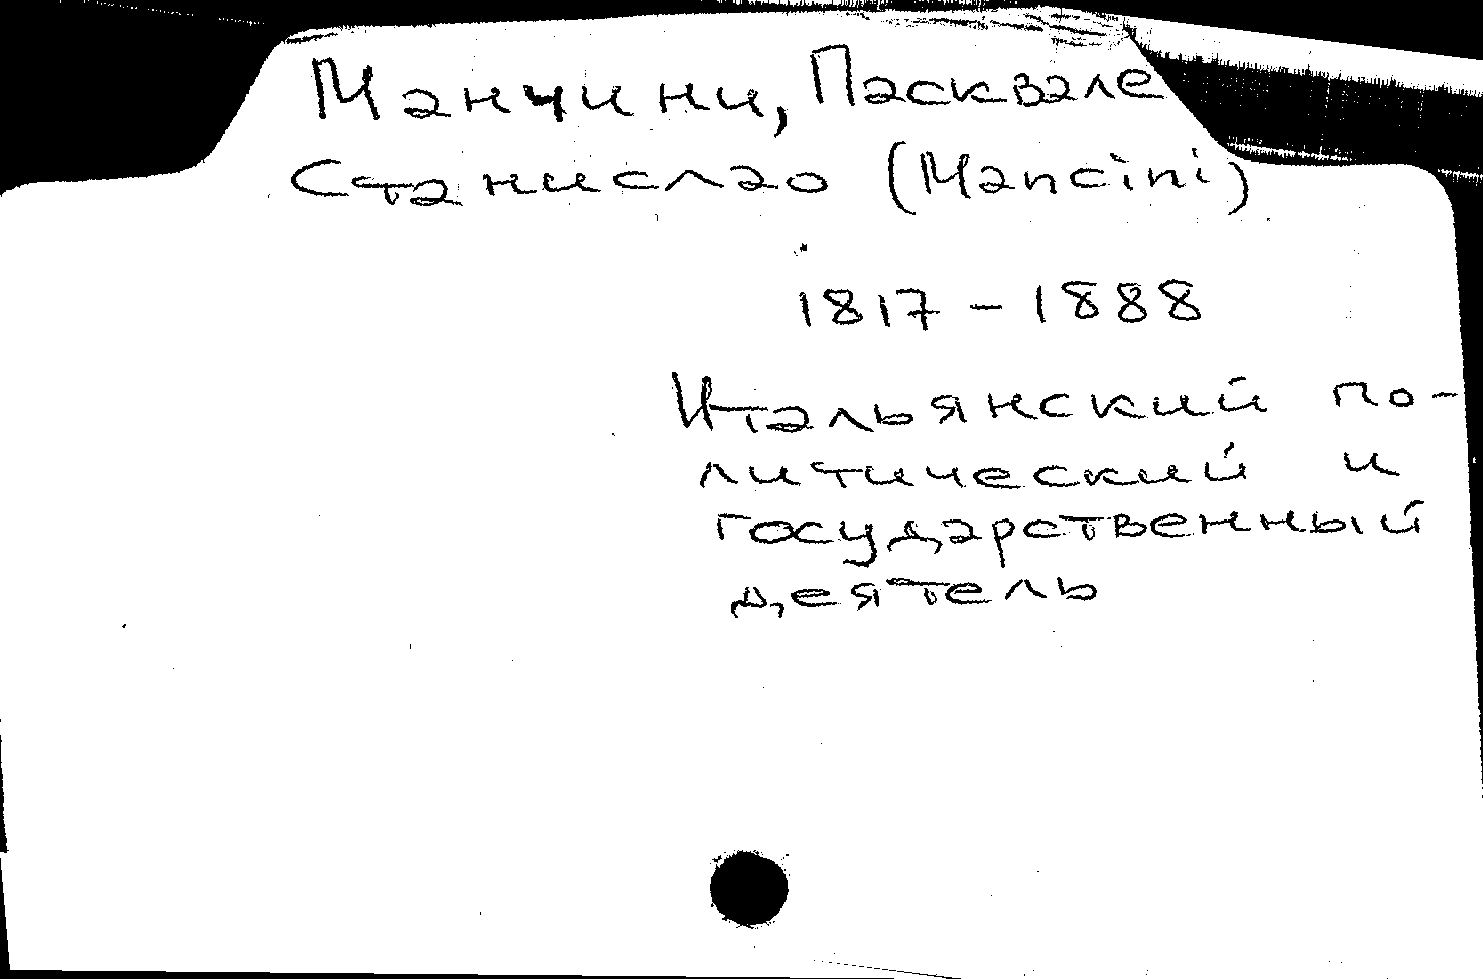 Манчини, Пасквале
Станислао (Mancini)
1817 - 1888
Итальянский по-
литический и
государственный
деятель